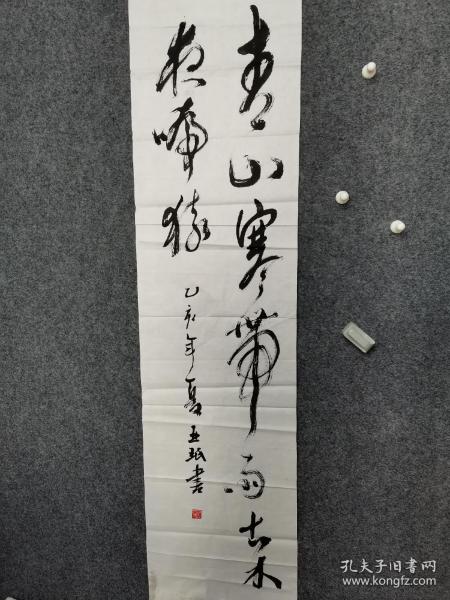 青山寒带雨古木
夜啼猿
乙亥年夏 玉珉书
孔夫子旧书网
www.kongfz.com